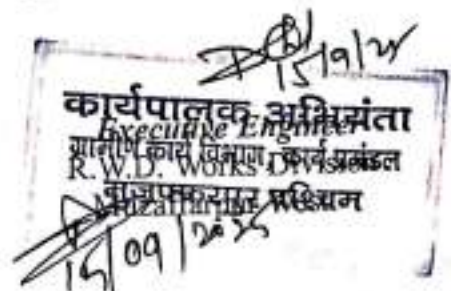 15/9/25
कार्यपालक अभियंता
Executive Engineer
ग्रामीण कार्य विभाग, कार्य प्रमंडल
R.W.D. Works Division
मुजफ्फरपुर पश्चिम
Muzaffarpur West
15/09/2025